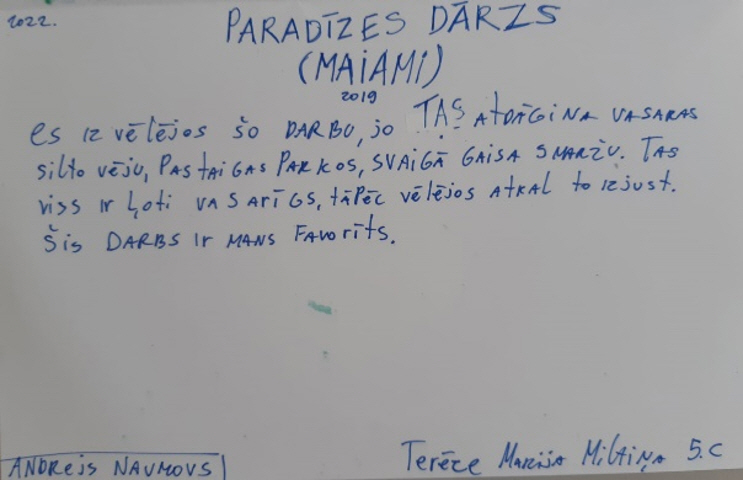 2022.
PARADĪZES DĀRZS
(MAIAMI)
2019
es izvēlējos šo DARBU, jo TAS ATDĀGINA VASARAS
silto vēju, PASTAIGAS PARKOS, SVAIGĀ GAISA SMARŽU. TAS
viss ir ļoti VASARĪGS, tāpēc vēlējos atkal to izjust.
Šis DARBS ir MANS FAVORĪTS.
ANDREJS NAUMOVS
Terēze Marija 5.c